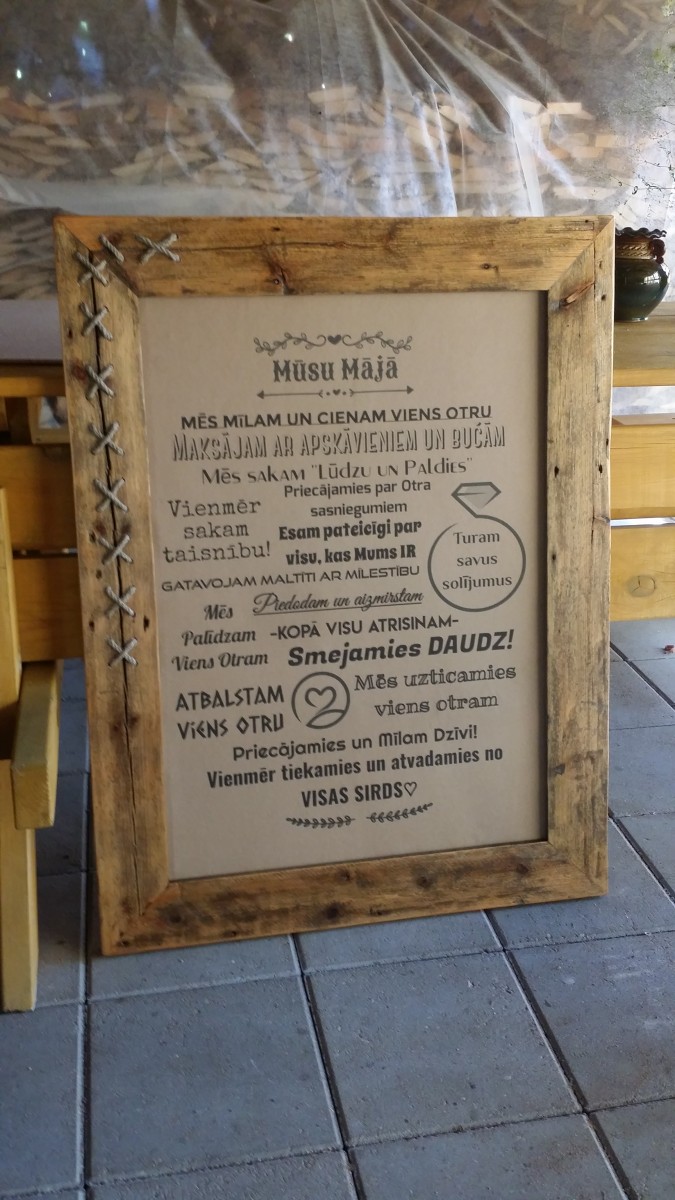 Mūsu Mājā
MĒS MĪLAM UN CIENAM VIENS OTRU
MAKSĀJAM AR APSKĀVIENIEM UN BUČĀM
MĒS SAKAM "LŪDZU UN PALDIES"
Priecājamies par Otra
sasniegumiem
Vienmēr
sakam
taisnību!
Esam pateicīgi par
visu, kas Mums IR
Turam
savus
solījumus
GATAVOJAM MALTĪTI AR MĪLESTĪBU
Piedodam un aizmirstam
Mēs
Palīdzam
Viens Otram
-KOPĀ VISU ATRISINAM-
Smejamies DAUDZ!
ATBALSTAM
VIENS OTRU
Mēs uzticamies
viens otram
Priecājamies un Mīlam Dzīvi!
Vienmēr tiekamies un atvadamies no
VISAS SIRDS♡